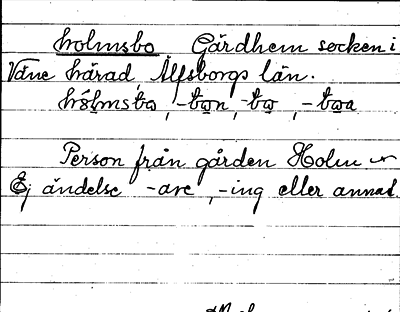 holmsbo Gärdhem socken i
Väne härad, Älfsborgs län.
hólmsbo, -bon, -bo, -boa
Person från gården Holm
Ej ändelse -are, -ing eller annat.